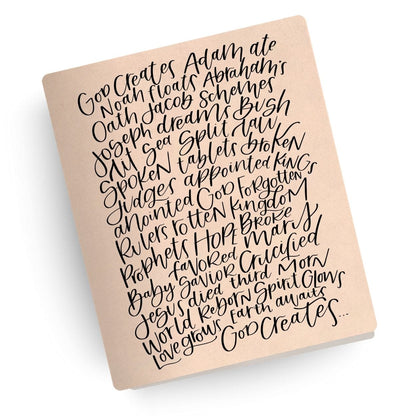 GOD CREATES ADAM ate
NOAH floats ABRAHAM's
OATH JACOB SCHEMES
JOSEPH dreams BUSH
lit SEA SPLIT LAW
SPOKEN tablets BROKEN
JUDGES appointed KINGS
anointed GOD FORGOTTEN
RULERS rotten KINGDOM
PROPHETS HOPE BROKE
favored MARY
Baby SAVIOR CRUCIFIED
JESUS died third MORN
WORLD REBORN SPIRIT Glows
LOVE grows EARTH awaits
GOD CREATES...